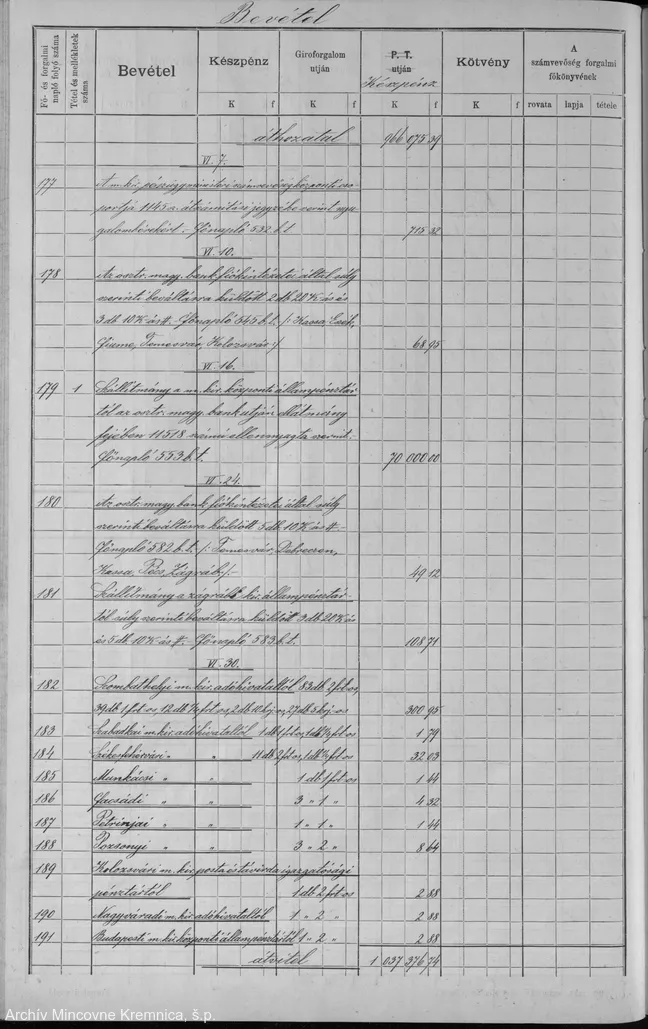 Bevétel
Fő- és forgalmi napló folyó száma
Tétel és mellékletek száma
Bevétel
Készpénz
Giroforgalom utján
P. T. utján
Készpénz
Kötvény
A számvevőség forgalmi főkönyvének
K f K f K f K f rovata lapja tétele
áthozatal 966 075 39
VI. 7.
177 A m. kir. pénzügyministeri számvevőség központi cso-
portja 1145 sz. átszámítási jegyzéke szerint nyu-
galombérekért. Főnapló 532 b.t. 715 32
VI. 10.
178 Az osztr. magy. bank fiókintézetei által súly
szerinti beváltásra küldött 2 db 20 K ás és
3 db 10 K ás #. Főnapló 545 b.t. /: Kassa, Eszék,
Fiume, Temesvár, Kolozsvár :/ 68 95
VI. 16.
179 1 Szállítmány a m. kir. központi állampénztár-
tól az osztr. magy. bank utján ellátmány
fejében 11518 számú ellennyugta szerint.
Főnapló 553 b.t. 70 000 00
VI. 24.
180 Az osztr. magy. bank fiókintézetei által súly
szerinti beváltásra küldött 5 db 10 K ás #.
Főnapló 582 b.t. /: Temesvár, Debreczen,
Kassa, Pécs, Zágráb :/ 49 12
181 Szállítmány a zágrábi kir. állampénztár-
tól súly szerinti beváltásra küldött 3 db 20 K ás
és 5 db 10 K ás #. Főnapló 583 b.t. 108 71
VI. 30.
182 Szombathelyi m. kir. adóhivataltól 83 db 2 frt os,
39 db 1 frt os 12 db ¼ frt os, 2 db 10 kj os, 27 db 5 kj. os 300 95
183 Szabadkai m. kir. adóhivataltól 1 db 1 frt os, 1 db ¼ frt os 1 79
184 Székesfehérvári " " 11 db 2 frt os, 1 db ¼ frt os 32 03
185 Munkácsi " " 1 db 1 frt os 1 44
186 Facsádi " " 3 " 1 " 4 32
187 Petrinjai " " 1 " 1 " 1 44
188 Pozsonyi " " 3 " 2 " 8 64
189 Kolozsvári m. kir. posta és távirda igazgatósági
pénztártól 1 db 2 frt os 2 88
190 Nagyváradi m. kir. adóhivataltól 1 " 2 " 2 88
191 Budapesti m. kir. központi állampénztártól 1 " 2 " 2 88
átvitel 1 037 376 74
Archív Mincovne Kremnica, š.p.